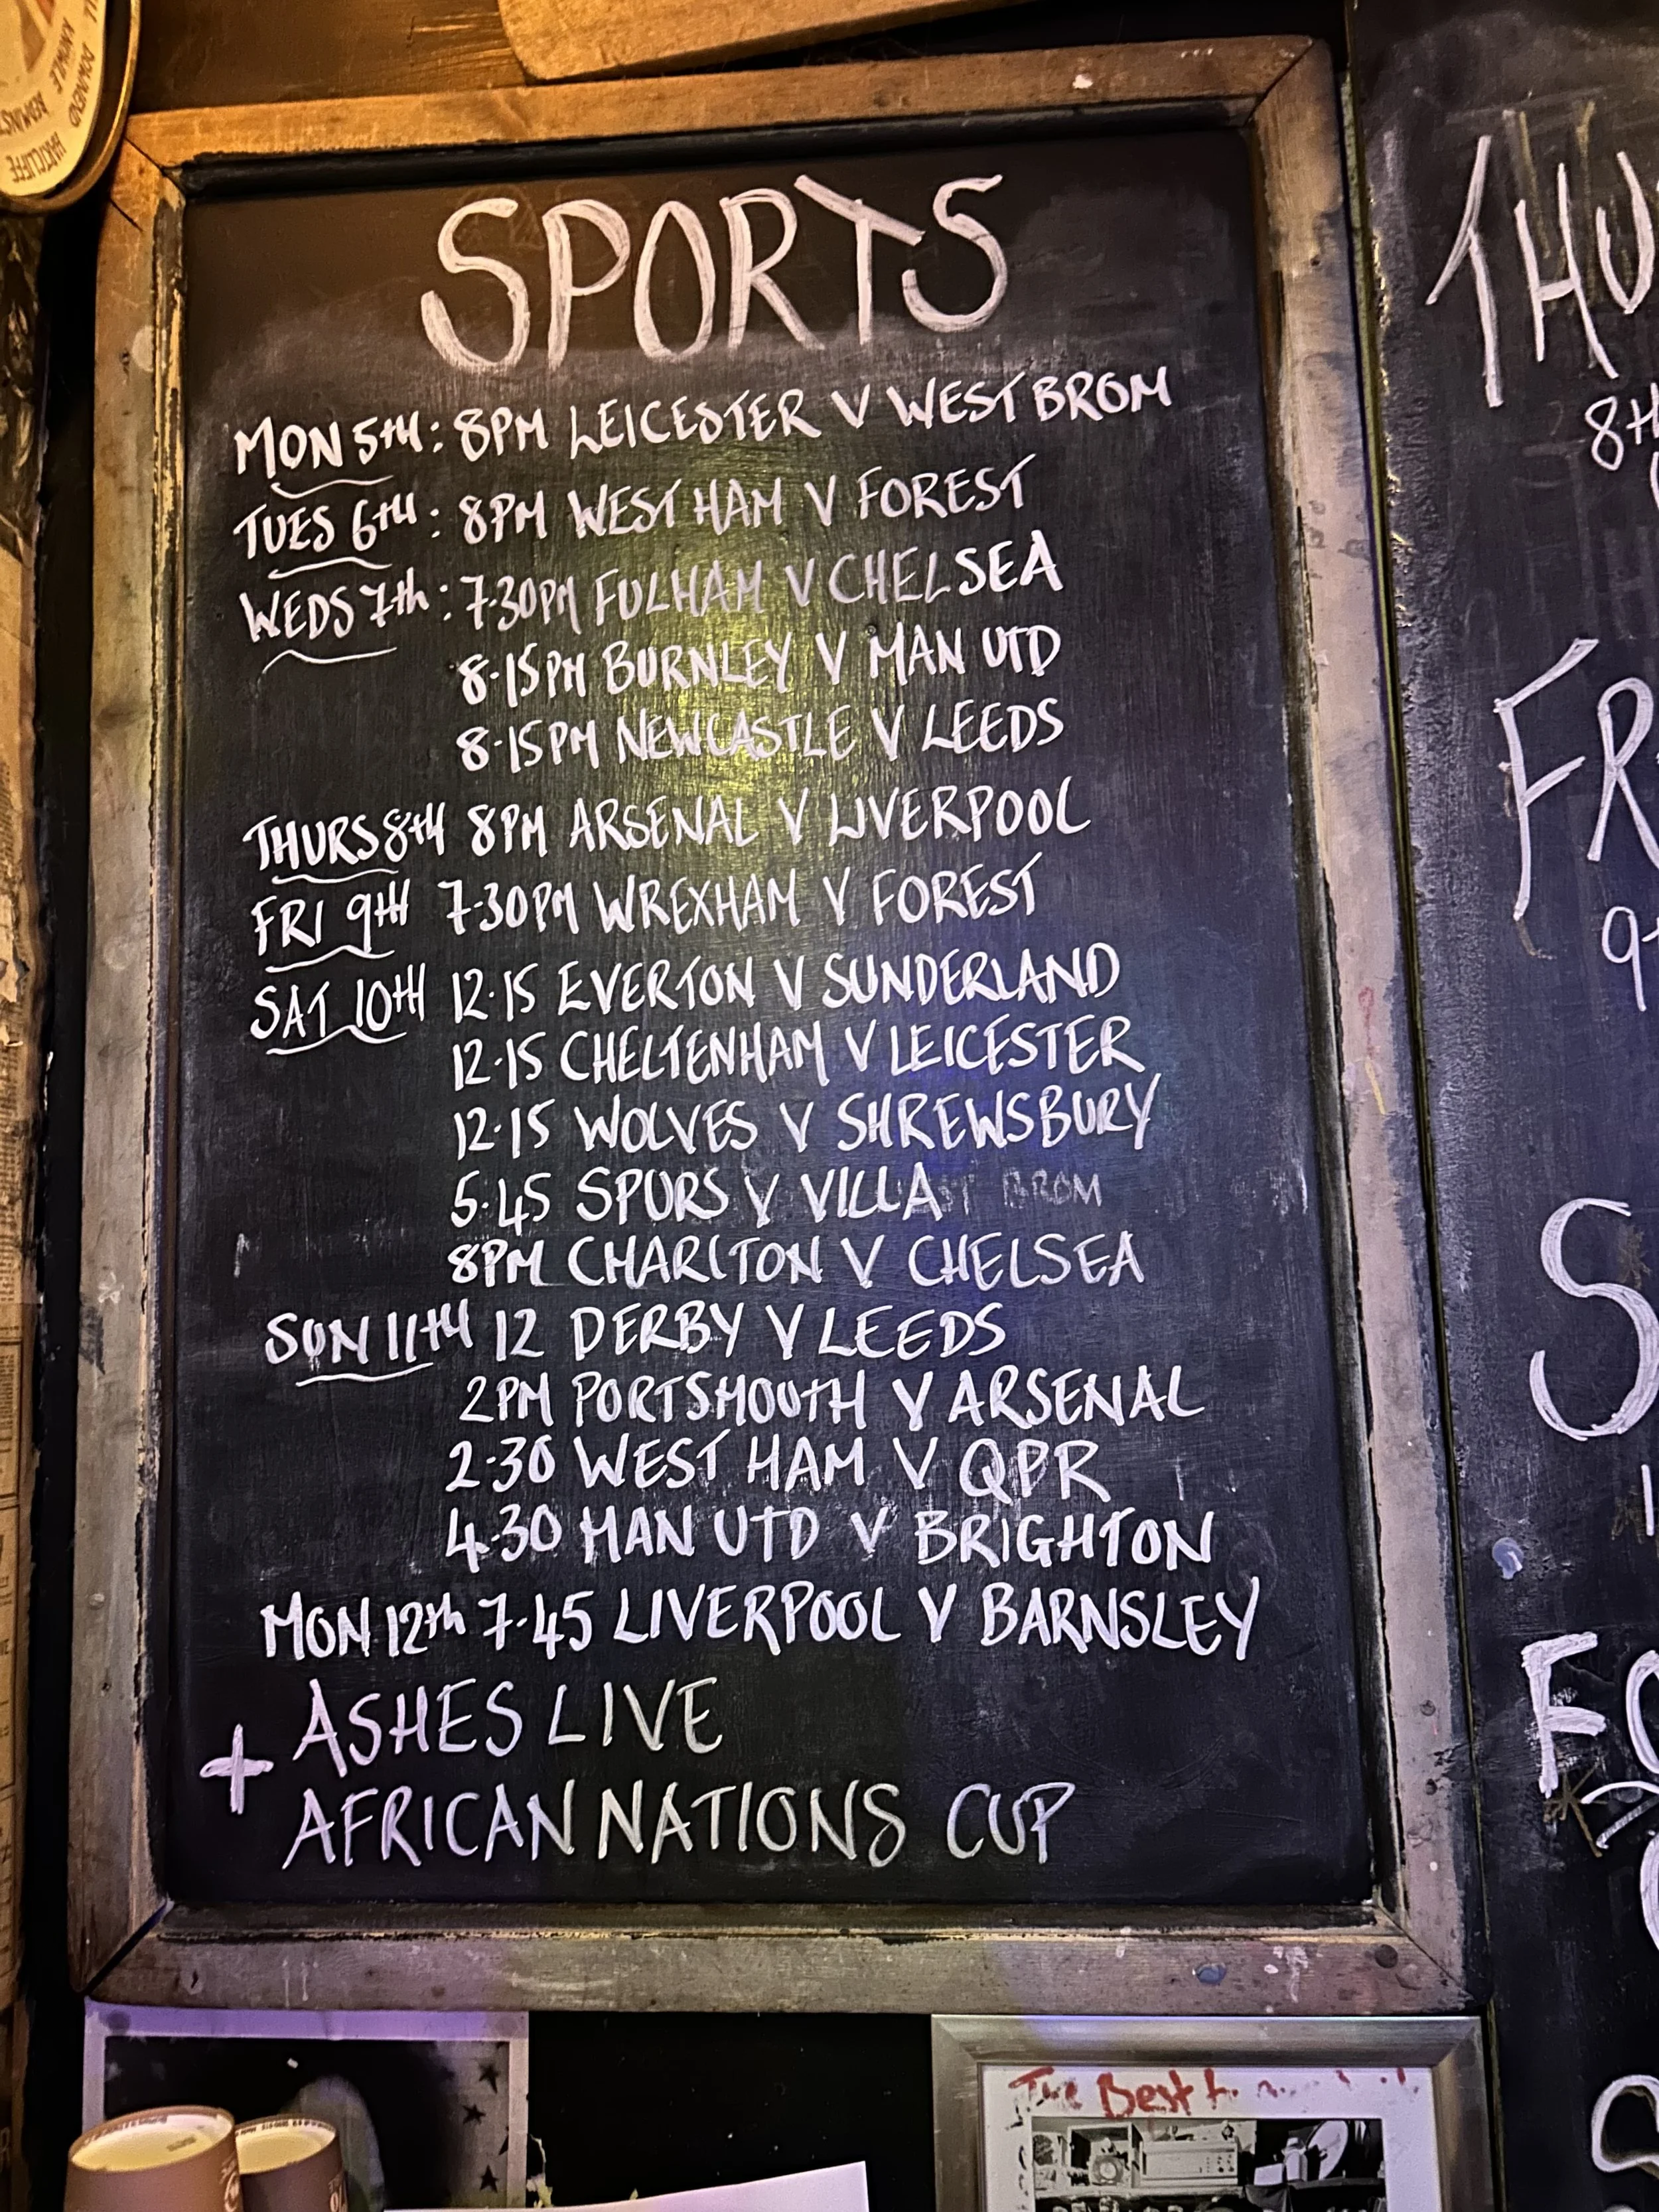 SPORTS
MON 5TH: 8PM LEICESTER V WEST BROM
TUES 6TH: 8PM WEST HAM V FOREST
WEDS 7th: 7.30PM FULHAM V CHELSEA
8.15PM BURNLEY V MAN UTD
8.15PM NEWCASTLE V LEEDS
THURS 8TH 8PM ARSENAL V LIVERPOOL
FRI 9TH 7.30PM WREXHAM V FOREST
SAT 10TH 12.15 EVERTON V SUNDERLAND
12.15 CHELTENHAM V LEICESTER
12.15 WOLVES V SHREWSBURY
5.45 SPURS V VILLA BROM
8PM CHARLTON V CHELSEA
SUN 11TH 12 DERBY V LEEDS
2PM PORTSMOUTH V ARSENAL
2.30 WEST HAM V QPR
4.30 MAN UTD V BRIGHTON
MON 12th 7.45 LIVERPOOL V BARNSLEY
+ ASHES LIVE
AFRICAN NATIONS CUP
THU
8TH
FR
9
S
1
FO
The Best
KNOWLE
HARTCLIFFE